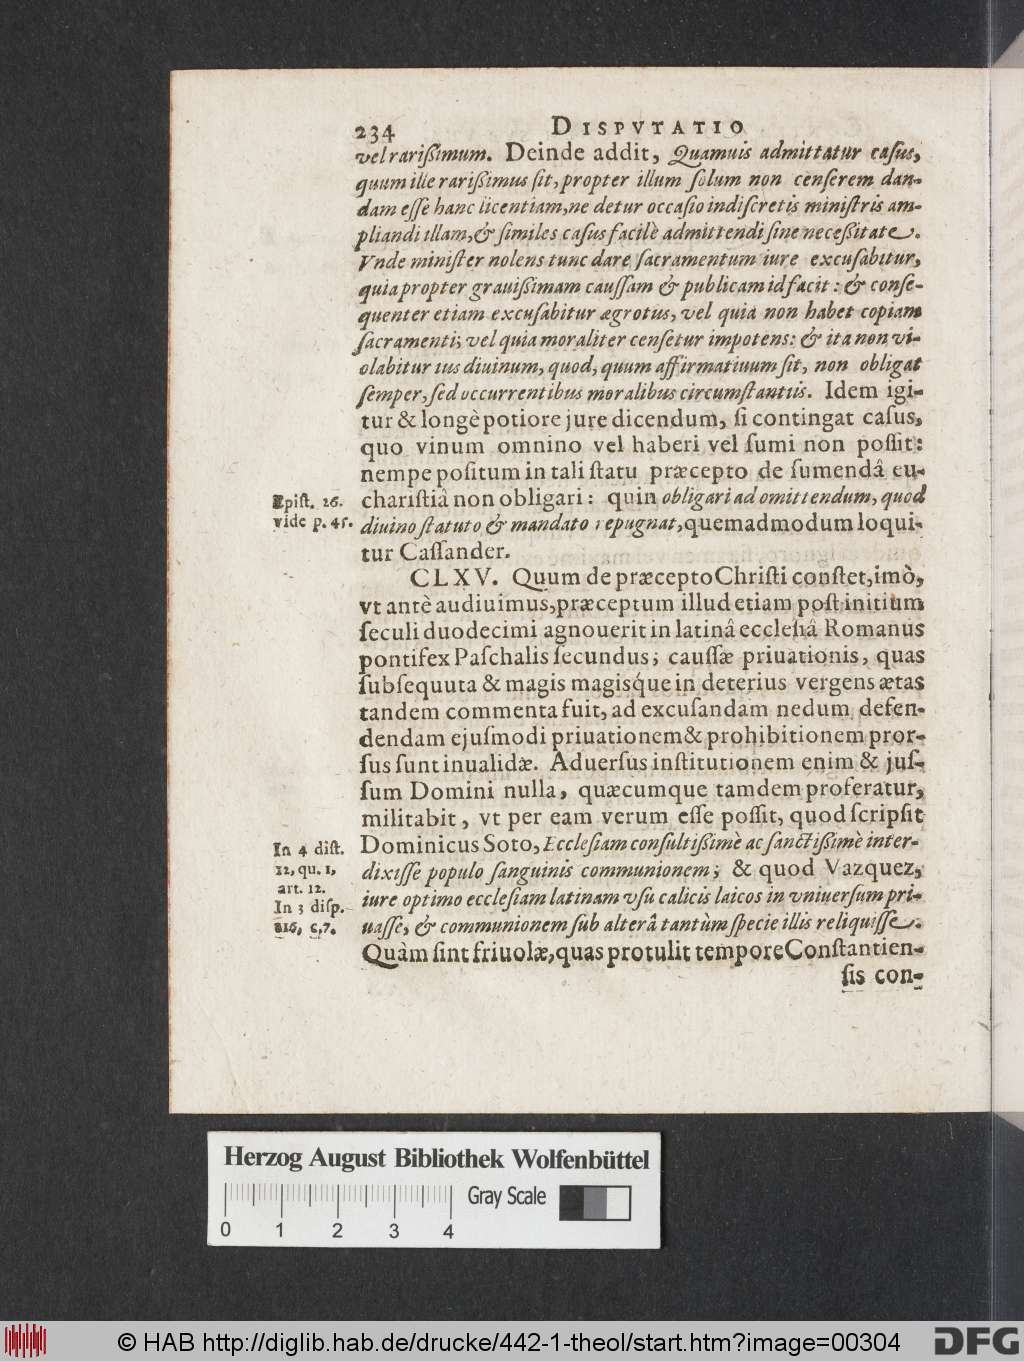 234 DISPVTATIO
vel rarißimum. Deinde addit, Quamuis admittatur caſus,
quum ille rarißimus ſit, propter illum ſolum non cenſerem dan-
dam eſſe hanc licentiam, ne detur occaſio indiſcretis miniſtris am-
pliandi illam, & ſimiles caſus facilè admittendi ſine neceßitate.
Vnde miniſter nolens tunc dare ſacramentum iure excuſabitur,
quia propter grauißimam cauſſam & publicam id facit: & conſe-
quenter etiam excuſabitur ægrotus, vel quia non habet copiam
ſacramenti; vel quia moraliter cenſetur impotens: & ita non vi-
olabitur ius diuinum, quod, quum affirmatiuum ſit, non obligat
ſemper, ſed occurrentibus moralibus circumſtantiis. Idem igi-
tur & longè potiore jure dicendum, ſi contingat caſus,
quo vinum omnino vel haberi vel ſumi non poſſit:
nempe poſitum in tali ſtatu præcepto de ſumendâ eu-
Epiſt. 26. chariſtiâ non obligari: quin obligari ad omittendum, quod
vide p. 45. diuino ſtatuto & mandato repugnat, quemadmodum loqui-
tur Caſſander.
CLXV. Quum de præcepto Chriſti conſtet, imò,
vt antè audiuimus, præceptum illud etiam poſt initium
ſeculi duodecimi agnouerit in latinâ eccleſiâ Romanus
pontifex Paſchalis ſecundus; cauſſæ priuationis, quas
ſubſequuta & magis magisq́ue in deterius vergens ætas
tandem commenta fuit, ad excuſandam nedum defen-
dendam ejuſmodi priuationem & prohibitionem pror-
ſus ſunt inualidæ. Aduerſus inſtitutionem enim & juſ-
ſum Domini nulla, quæcumque tamdem proferatur,
militabit, vt per eam verum eſſe poſſit, quod ſcripſit
In 4 diſt. Dominicus Soto, Eccleſiam conſultißimè ac ſanctißimè inter-
12, qu. 1, dixiſſe populo ſanguinis communionem; & quod Vazquez,
art. 12.
In 3 diſp. iure optimo eccleſiam latinam vſu calicis laicos in vniuerſum pri-
216, c, 7. uaſſe, & communionem ſub alterâ tantùm ſpecie illis reliquiſſe.
Quàm ſint friuolæ, quas protulit tempore Conſtantien-
ſis con-
Herzog August Bibliothek Wolfenbüttel
Gray Scale
0 1 2 3 4
© HAB http://diglib.hab.de/drucke/442-1-theol/start.htm?image=00304
DFG